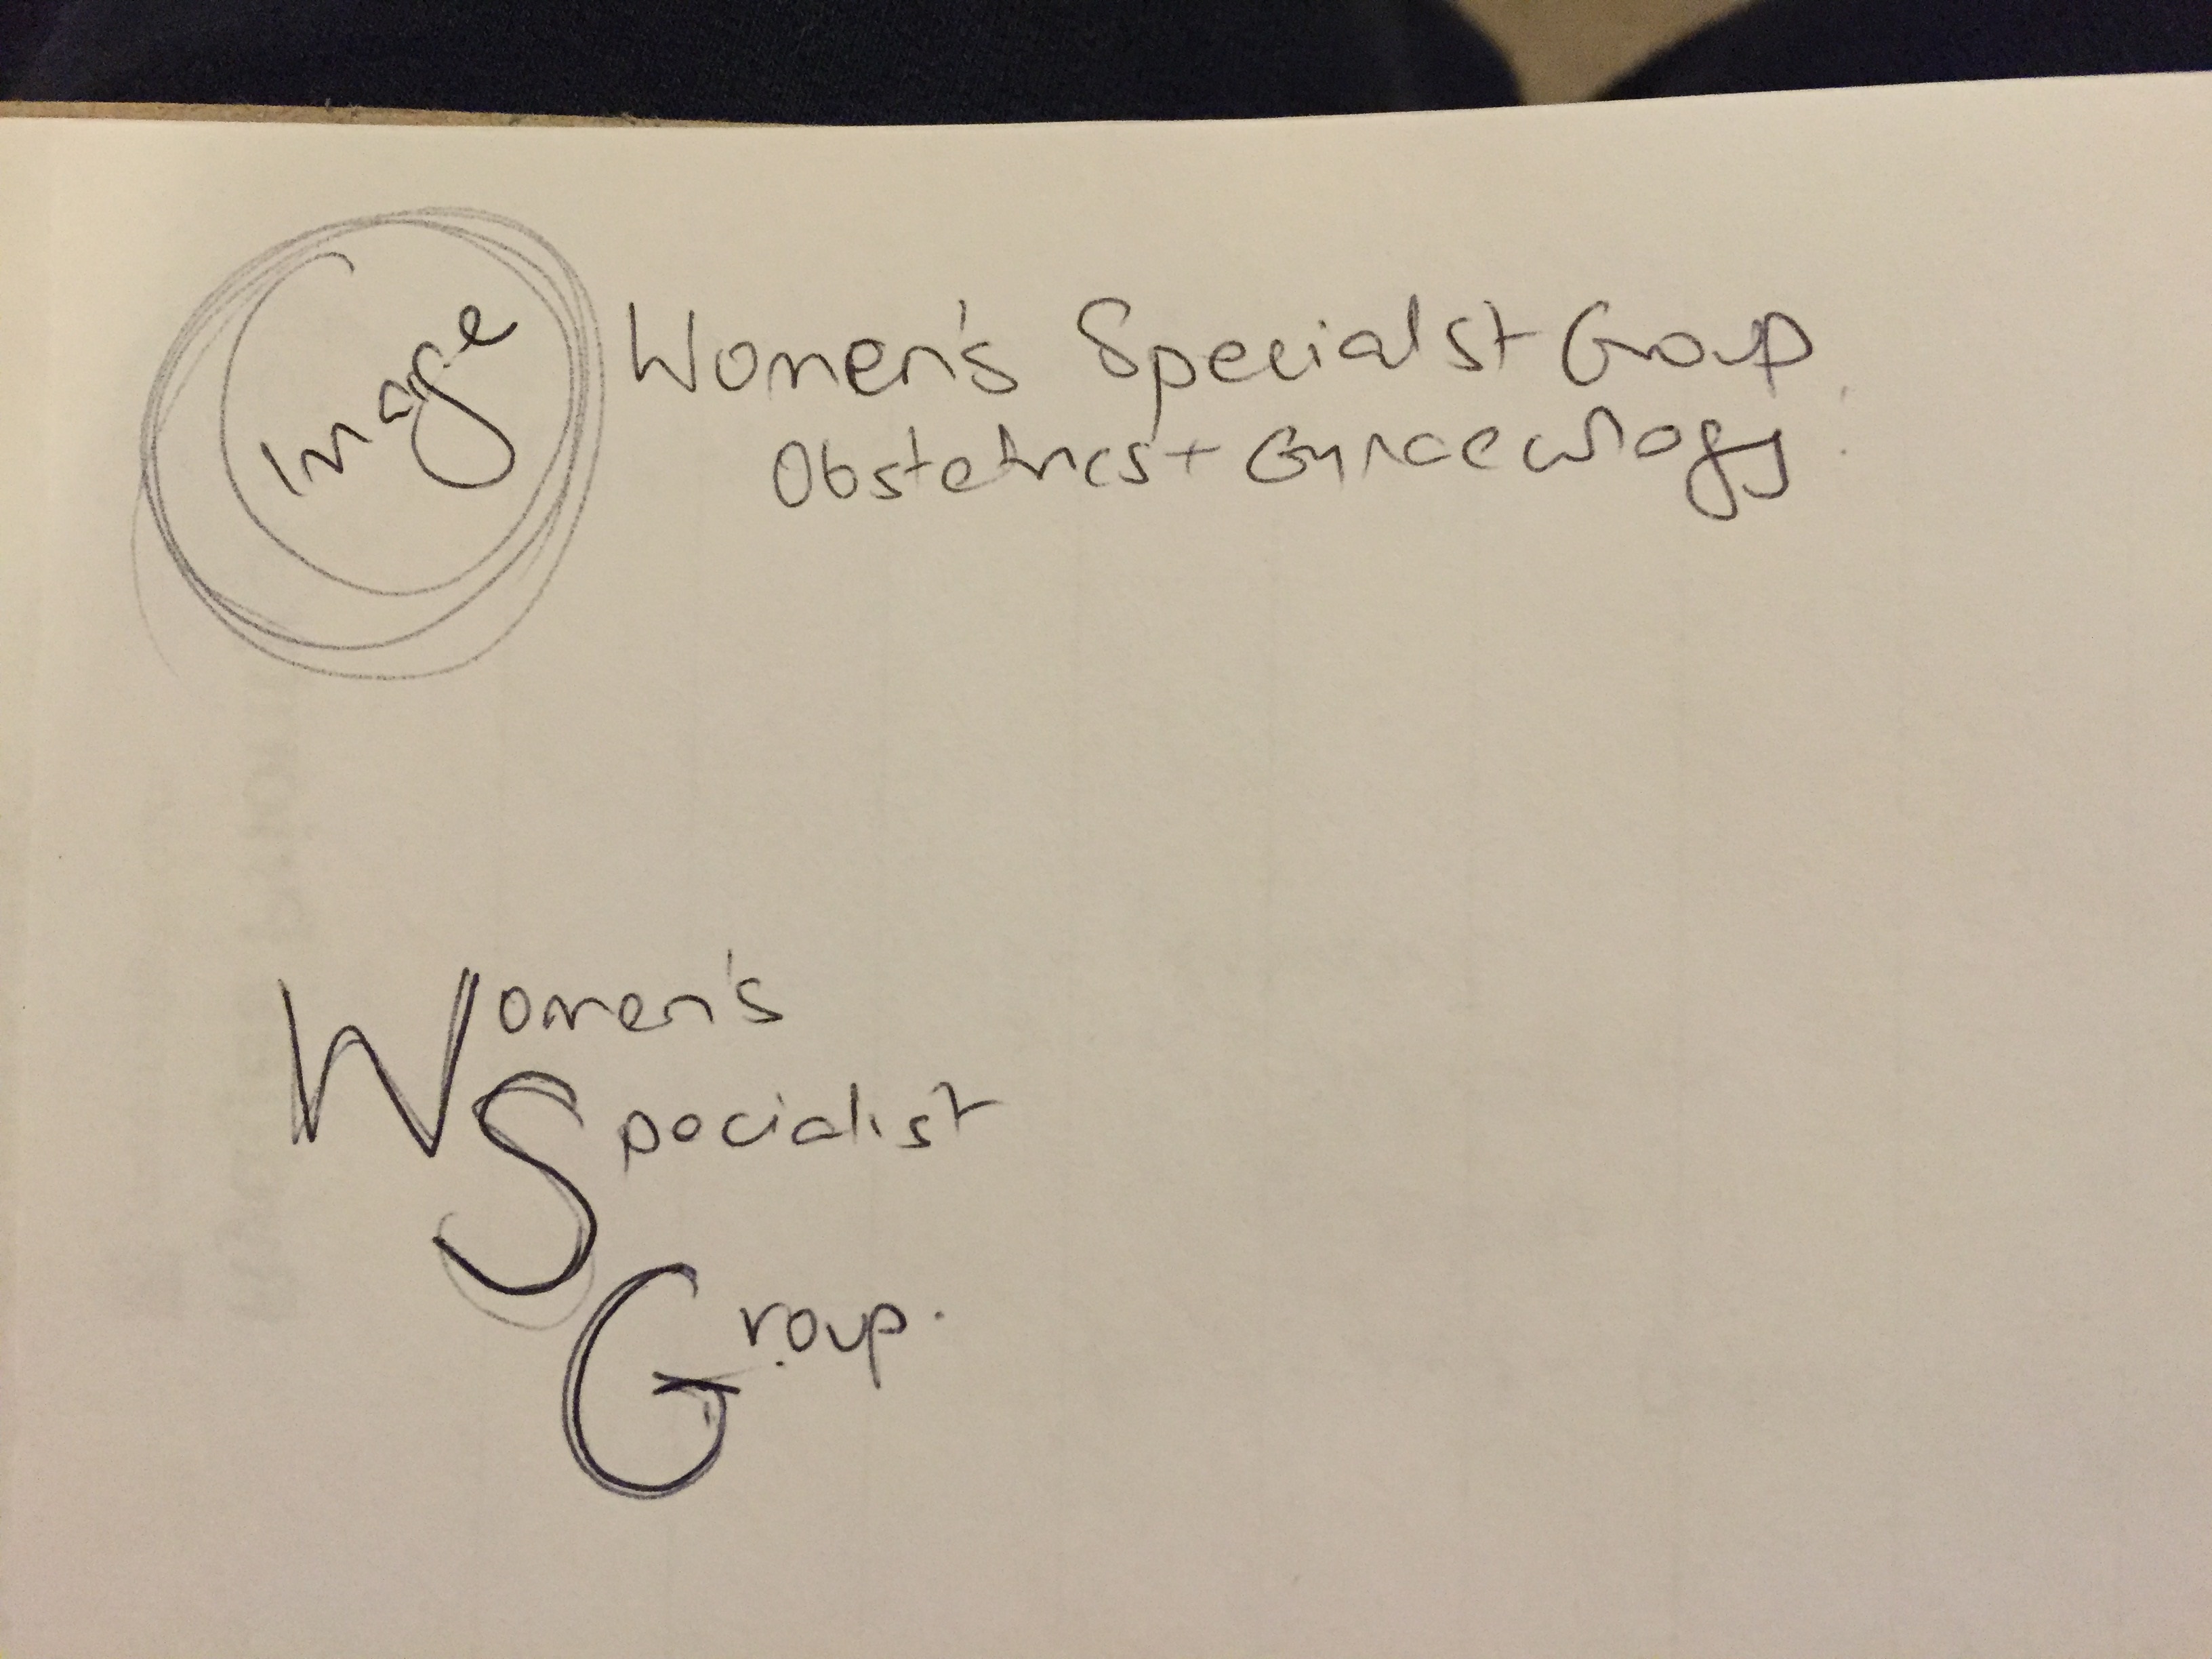 Image
Women's Specialst Group
Obstetrics + Gynaecology
Women's
Specialist
Group.